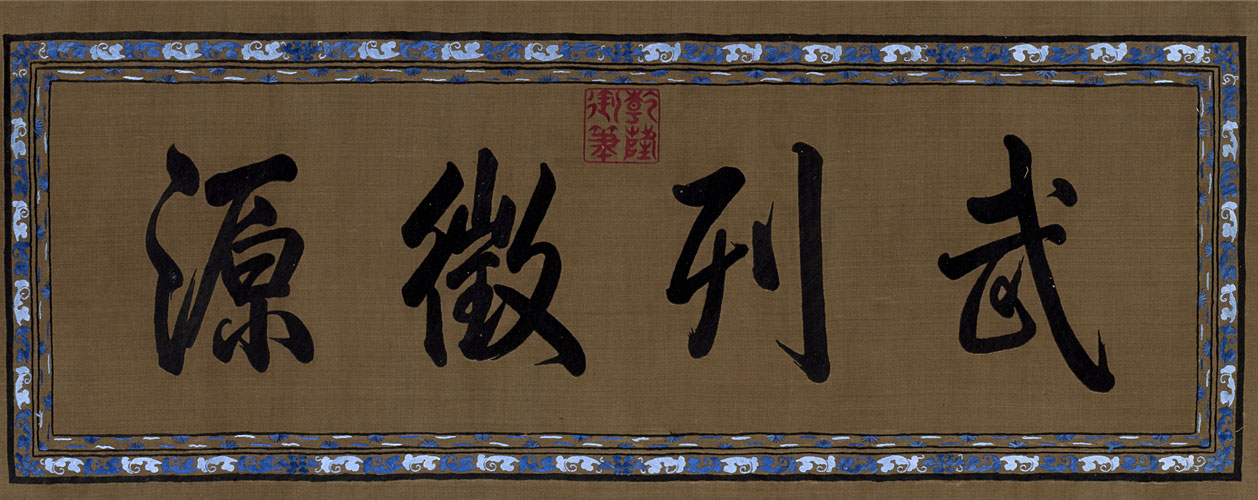 武列徵源
乾隆
御筆